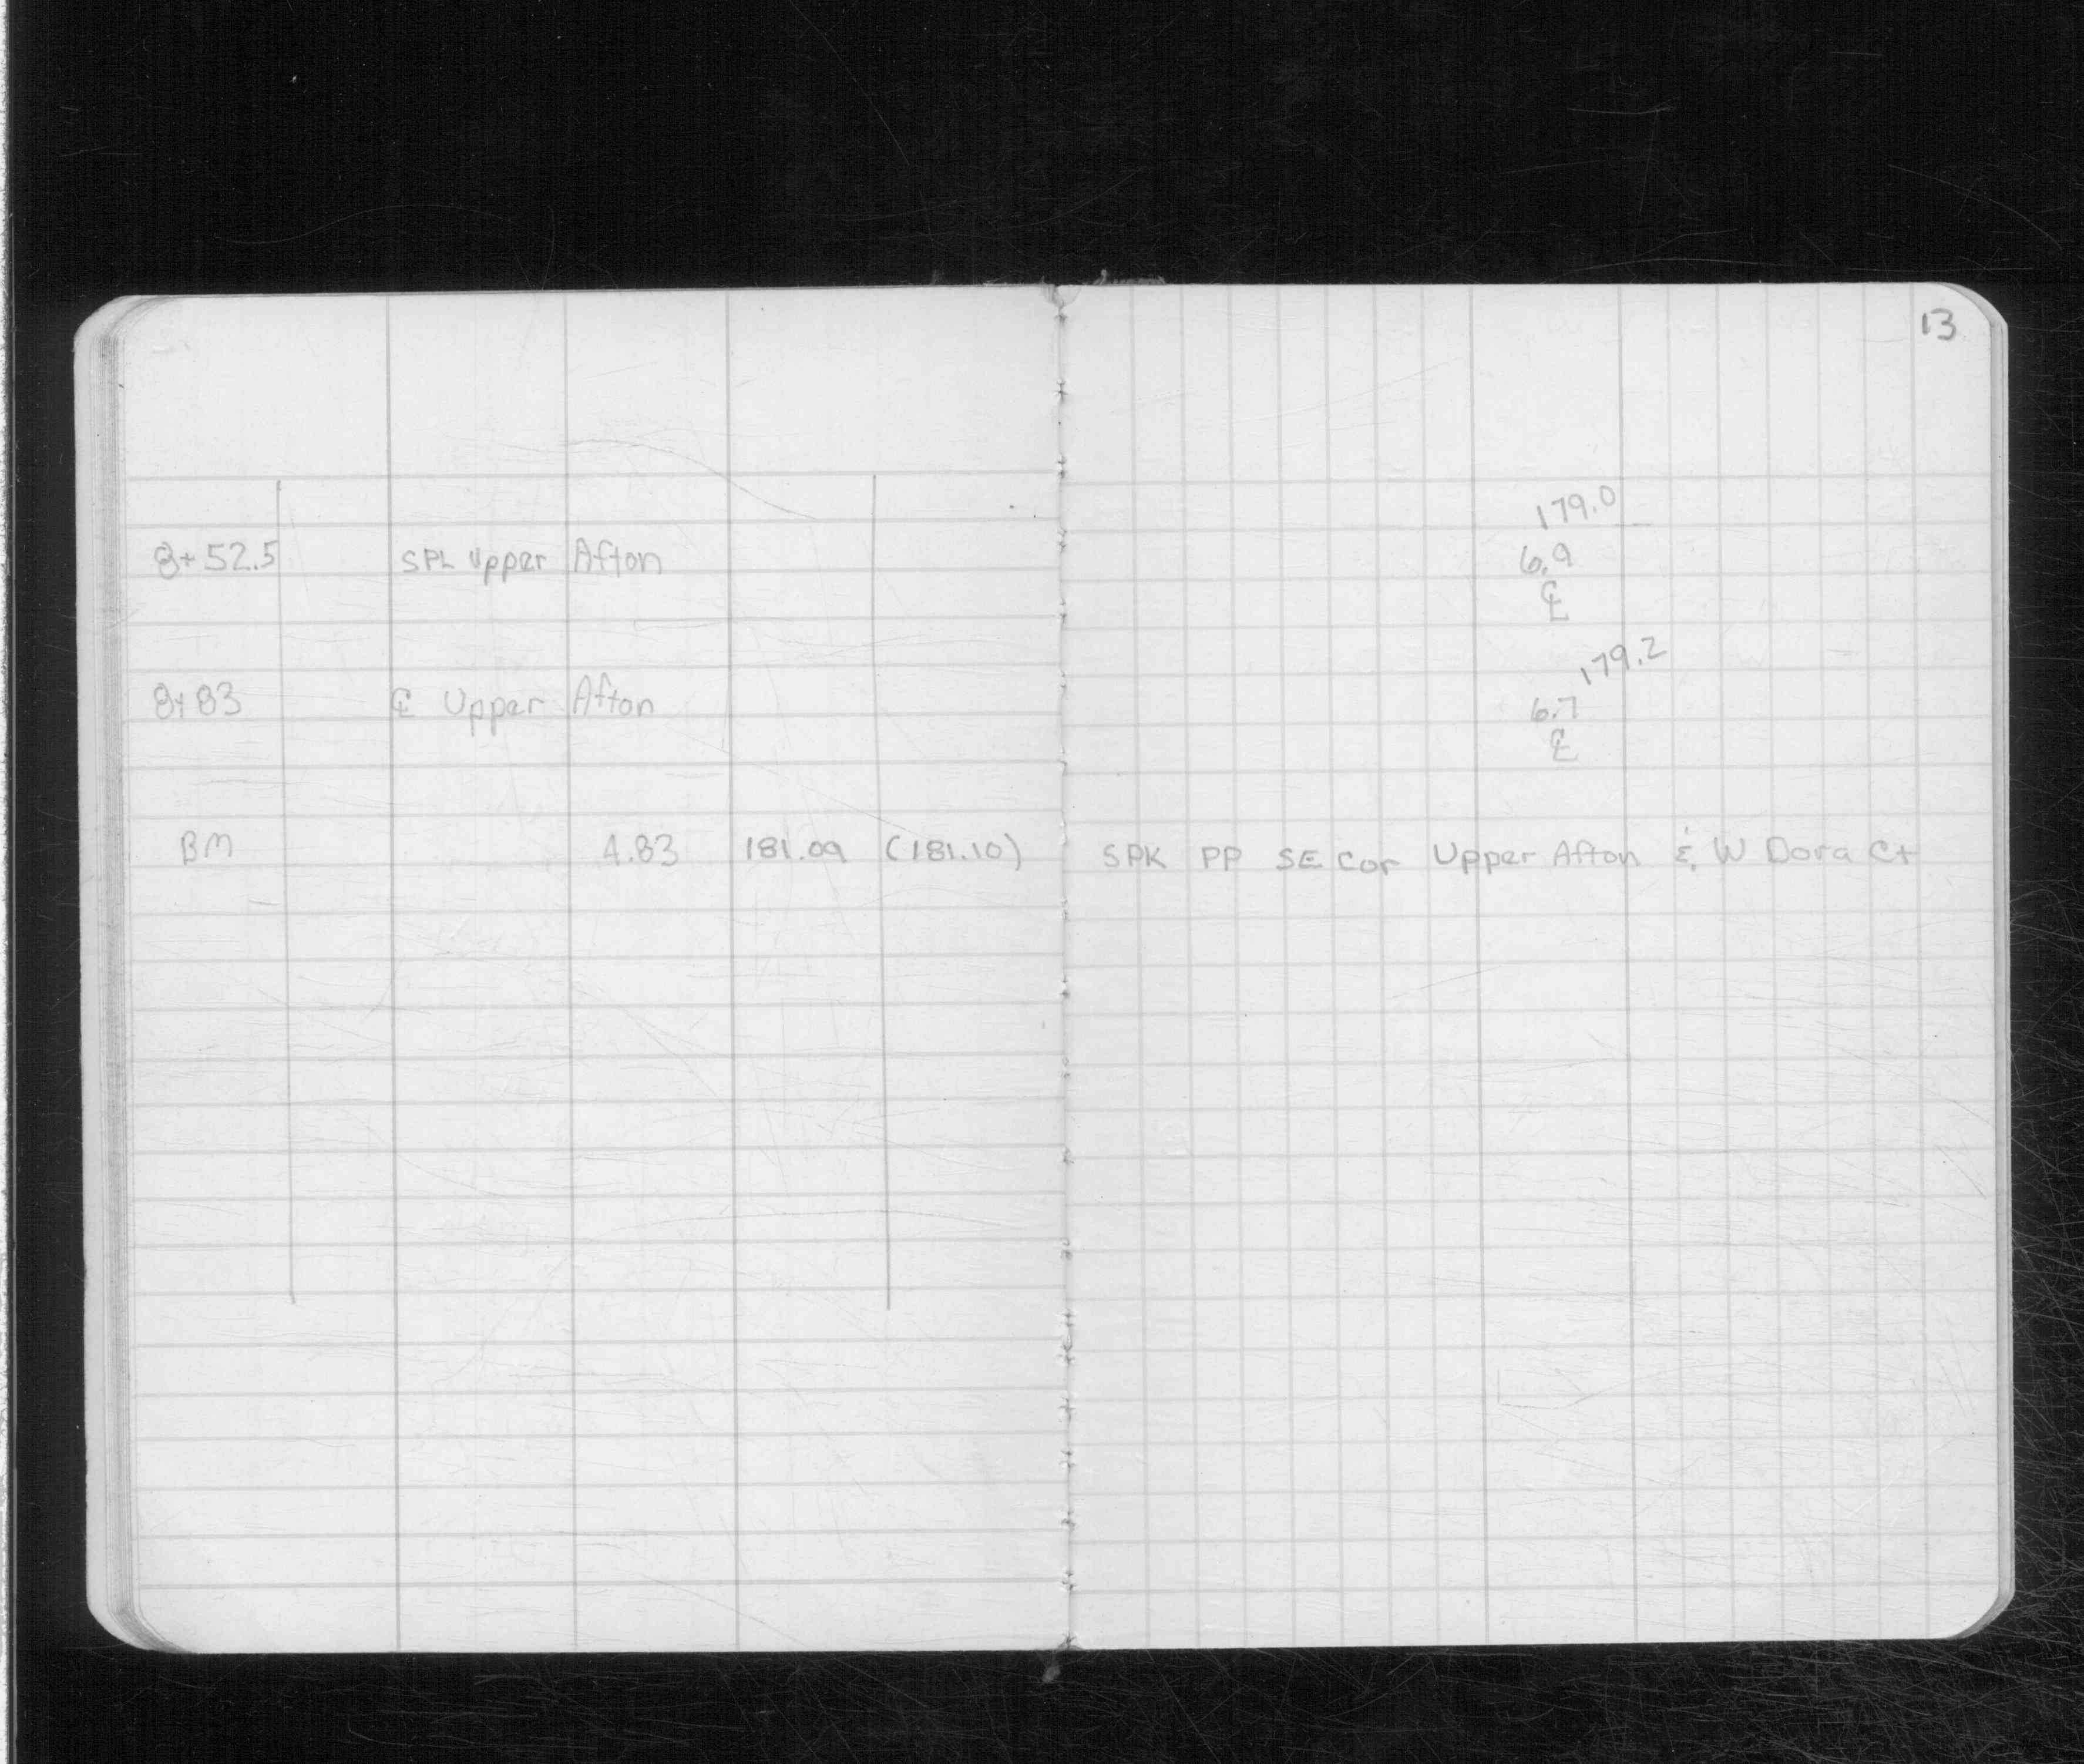 13
179.0
8+52.5 SPL Upper Afton 6.9
℄
179.2
8+83 ℄ Upper Afton 6.7
℄
BM 4.83 181.09 (181.10) SPK PP SE Cor Upper Afton & W Dora Ct